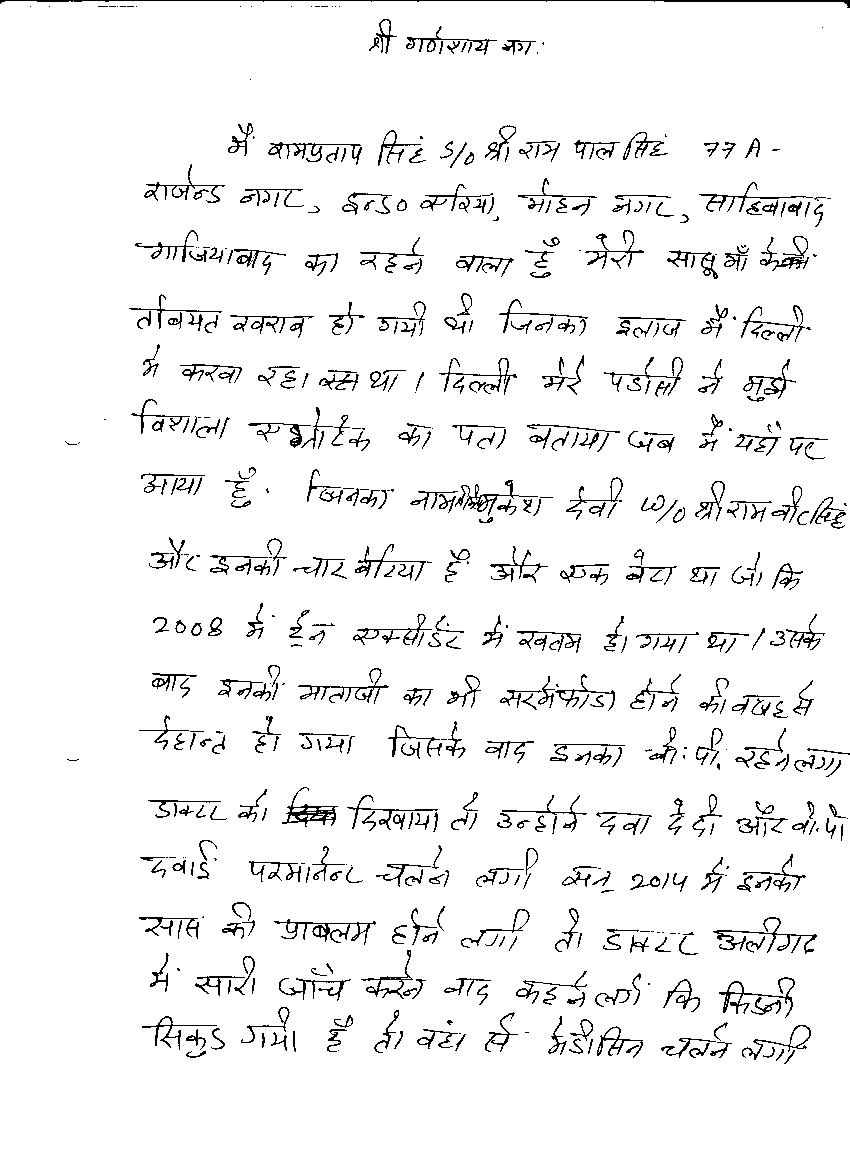 श्री गणेशाय नमः
मैं रामप्रताप सिहं S/o श्री राम पाल सिहं 77 A -
राजेन्ड नगर, इन्ड० एरिया, मोहन नगर, साहिबाबाद
गाजियाबाद का रहने वाला हुँ मेरी सासू माँ की
तबियत खराब हो गयी थी जिनका इलाज मैं दिल्ली
मे करवा रहा था। दिल्ली मेरे पडोसी ने मुझे
विशाला का पता बताया जब मैं यहाँ पर
आया हुँ. जिनका नाम मुकेश देवी W/o श्री रामवीर सिहं
और इनकी चार बेटिया हैं और एक बेटा था जो कि
2008 में ट्रेन एक्सीडेंट में खतम हो गया था। उसके
बाद इनकी माताजी का भी सरमेंफोडा होने की वजह से
देहान्त हो गया जिसके बाद इनका बी.पी. रहने लगा
डाक्टर को दिखाया तो उन्होने दवा दे दी और बी.पी
दवाई परमानेन्ट चलने लगी सन् 2014 में इनको
सास की प्राबलम होने लगी तो डाक्टर अलीगढ
में सारी जाँच करने बाद कहने लगे कि किडनी
सिकुड गयी है तो वहां से मेडीसिन चलने लगी